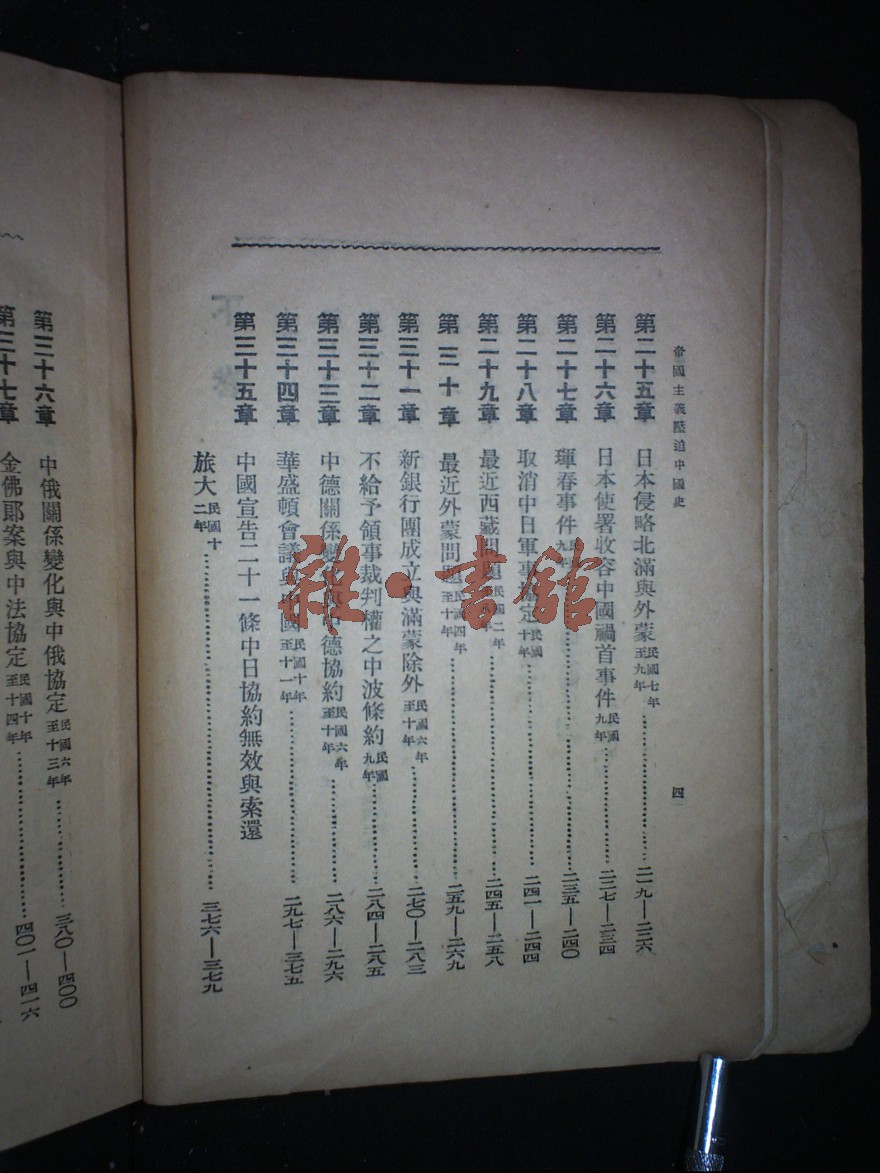 帝國主義壓迫中國史
四
第二十五章 日本侵略北滿與外蒙 民國七年至九年 二一九—二二六
第二十六章 日本使署收容中國禍首事件 民國九年 二二七—二三四
第二十七章 琿春事件 民國九年 二三五—二四〇
第二十八章 取消中日軍事協定 民國十年 二四一—二四四
第二十九章 最近西藏問題 民國二年 二四五—二五八
第三十章 最近外蒙問題 民國四年至十年 二五九—二六九
第三十一章 新銀行團成立與滿蒙除外 民國六年至十年 二七〇—二八三
第三十二章 不給予領事裁判權之中波條約 民國九年 二八四—二八五
第三十三章 中德關係變化與中德協約 民國六年至十年 二八六—二九六
第三十四章 華盛頓會議與中國 民國十年至十一年 二九七—三七五
第三十五章 中國宣告二十一條中日協約無效與索還
旅大 民國十二年 三七六—三七九
第三十六章 中俄關係變化與中俄協定 民國六年至十三年 三八〇—四〇〇
第三十七章 金佛郎案與中法協定 民國十年至十四年 四〇一—四一六
雜·書館